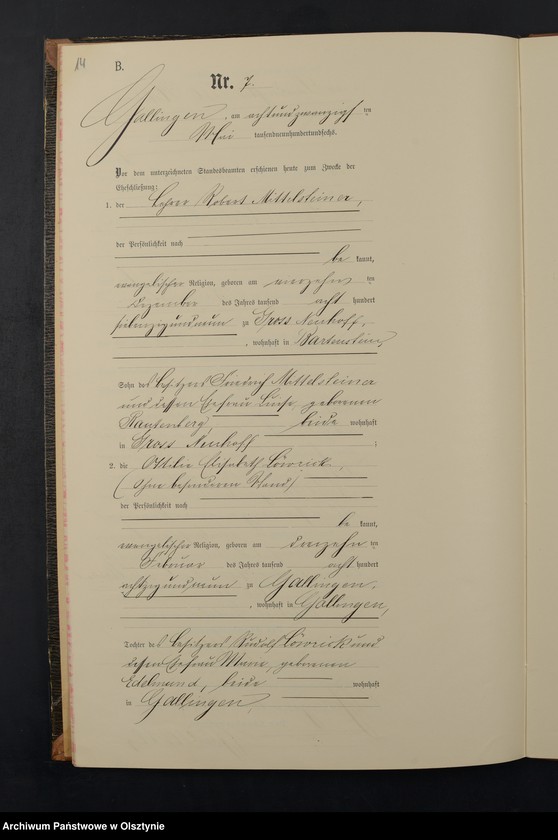 14
B.
Nr. 7.
Gallingen, am achtundzwanzigsten
Mai tausendneunhundertundsechs.
Vor dem unterzeichneten Standesbeamten erschienen heute zum Zwecke der
Eheschließung:
1. der Lehrer Robert Mittelsteiner,
der Persönlichkeit nach
be kannt,
evangelischer Religion, geboren am vierzehnten
Dezember des Jahres tausend acht hundert
siebenzigundneun zu Gross Neuhoff,
, wohnhaft in Bartenstein,
Sohn des Besitzers Friedrich Mittelsteiner
und dessen Ehefrau Luise, geborenen
Rautenberg, beide wohnhaft
in Gross Neuhoff ;
2. die Ottilie Elisabeth
(ohne besonderen Stand)
der Persönlichkeit nach
be kannt,
evangelischer Religion, geboren am
Februar des Jahres tausend acht hundert
achtzigundneun zu Gallingen,
, wohnhaft in Gallingen,
Tochter des Besitzers Rudolf und
dessen Ehefrau geborenen
Edelmund, beide wohnhaft
in Gallingen,
Archiwum Państwowe w Olsztynie